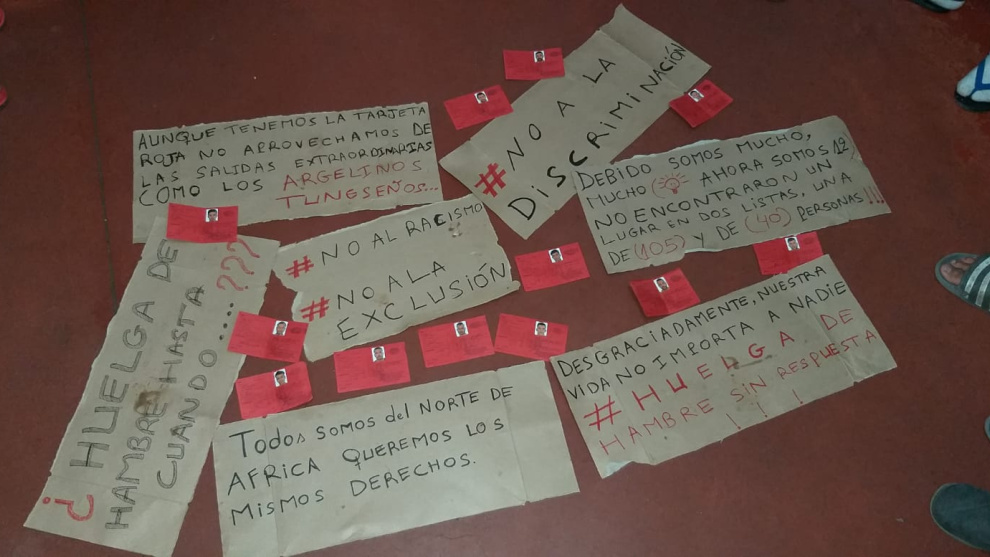 AUNQUE TENEMOS LA TARJETA
ROJA NO APROVECHAMOS DE
LAS SALIDAS EXTRAORDINARIAS
COMO LOS ARGELINOS
TUNGSEÑOS...
#NO A LA
DISCRIMINACIÓN
DEBIDO SOMOS MUCHO,
MUCHO ( AHORA SOMOS 12
NO ENCONTRARON UN
LUGAR EN DOS LISTAS, UNA
DE (105) Y DE (40) PERSONAS!!!
#NO AL RACISMO
#NO A LA
EXCLUSIÓN
¿HUELGA DE
HAMBRE HASTA
CUANDO....???
DESGRACIADAMENTE, NUESTRA
VIDA NO IMPORTA A NADIE
#HUELGA DE
HAMBRE SIN RESPUESTA
! ! !
Todos SOMOS del NORTE DE
AFRICA QUEREMOS LOS
MISMOS DERECHOS.